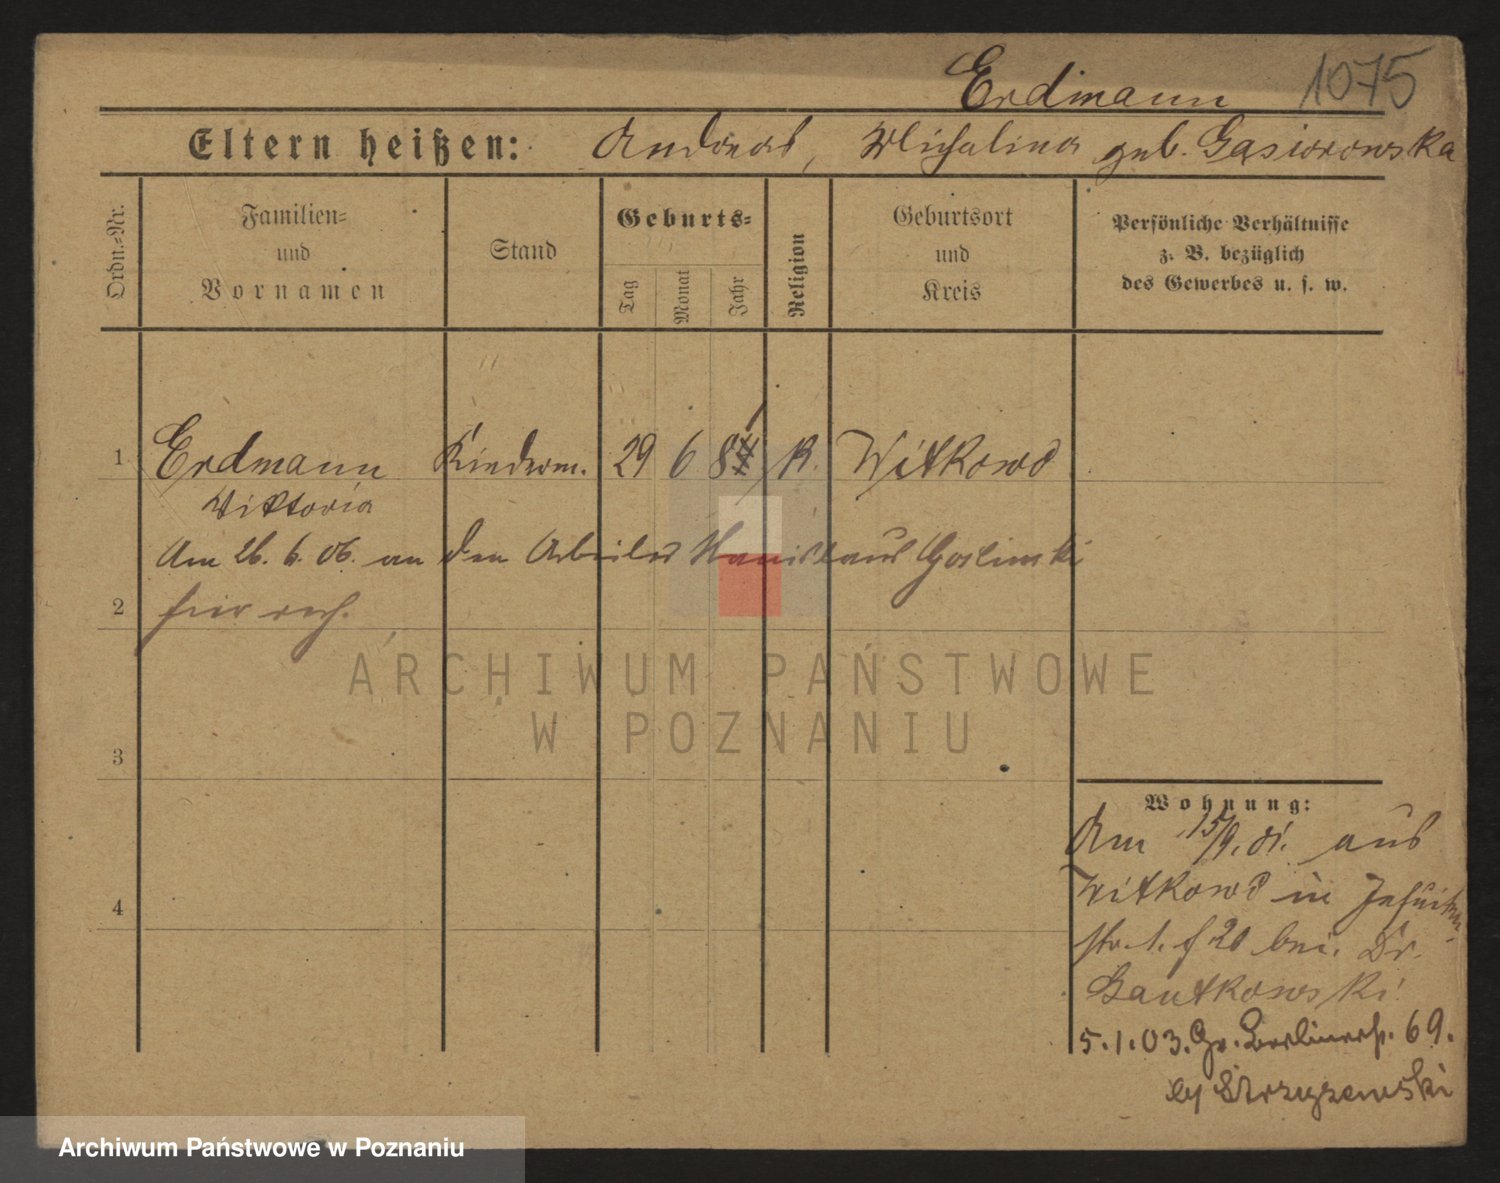 Erdmann 1075
Eltern heißen: Andreas, Michalina geb. Gasiorowska
Ordn.=Nr.
Familien=
und
Vornamen
Stand
Geburts=
Tag
Monat
Jahr
Religion
Geburtsort
und
Kreis
Persönliche Verhältnisse
z. B. bezüglich
des Gewerbes u. s. w.
1 Erdmann Kinderm. 29 6 81 K. Witkowo
Viktoria
Am 26. 6. 06. an den Arbeiter Stanislaus Goslinski
2 hier verh.
ARCHIWUM PAŃSTWOWE
W POZNANIU
3
Wohnung:
Am 15/9. 01. aus
Witkowo in Jesuiten-
4
str. 1. f 20 bei. Dr.
Gantkowski
5.1.03. Gr. Berlinerstr. 69.
by Strzyzewski
Archiwum Państwowe w Poznaniu